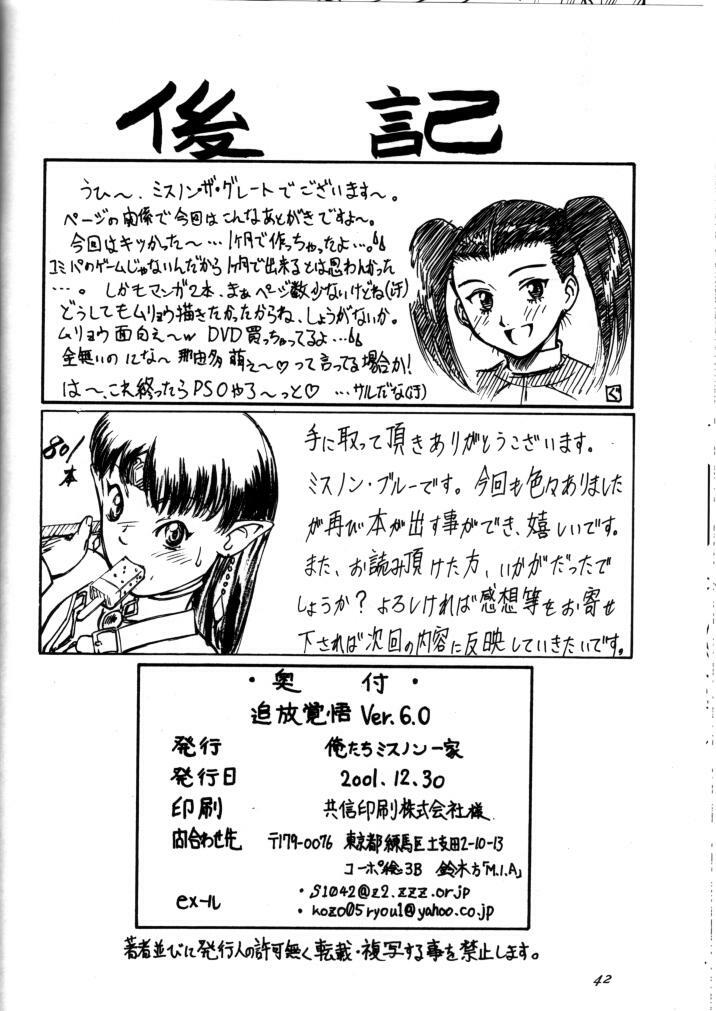 後記
うひ〜、ミスノン・ザ・グレートでございます〜。
ページの関係で今回はこんなあとがきですよ〜。
今回はキツかった〜…1ヶ月で作っちゃったよ…。
コミパのゲームじゃないんだから1ヶ月で出来るとは思わんかった
…。しかもマンガ2本、まぁページ数少ないけどね(汗)
どうしてもムリョウ描きたかったからね、しょうがないか。
ムリョウ面白え〜w DVD買っちゃってるよ…
金無いのになー 那由多萌え〜♡って言ってる場合か!
は〜、これ終ったらPSOやろ〜っと♡ …サルだな(汗)
ぐ
801
本
手に取って頂きありがとうございます。
ミスノン・ブルーです。今回も色々ありました
が再び本が出す事ができ、嬉しいです。
また、お読み頂けた方、いかがだったで
しょうか?よろしければ感想等をお寄せ
下されば次回の内容に反映していきたいです。
・奥付・
追放覚悟 Ver.6.0
発行 俺たちミスノン一家
発行日 2001.12.30
印刷 共信印刷株式会社様
問合わせ先 〒179-0076 東京都練馬区土支田2-10-13
コーポ絵3B 鈴木方「M.I.A」
exール ・S1042@z2.zzz.or.jp
・kozo05ryou1@yahoo.co.jp
著者並びに発行人の許可無く転載・複写する事を禁止します。
42